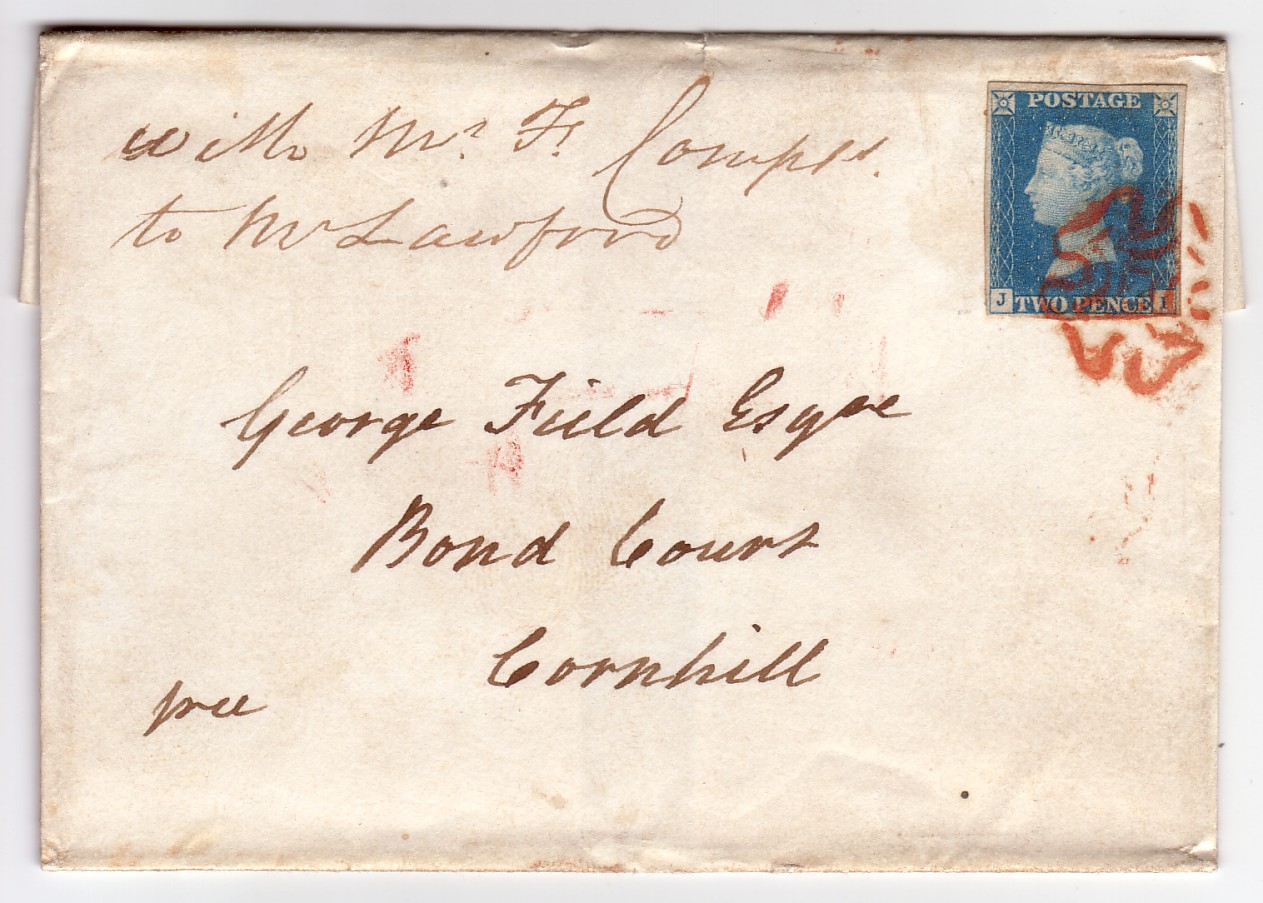 with Mr. F.
to Mr Lawford
POSTAGE
J TWO PENCE I
George Field Esqre
Bond Court
Cornhill
free